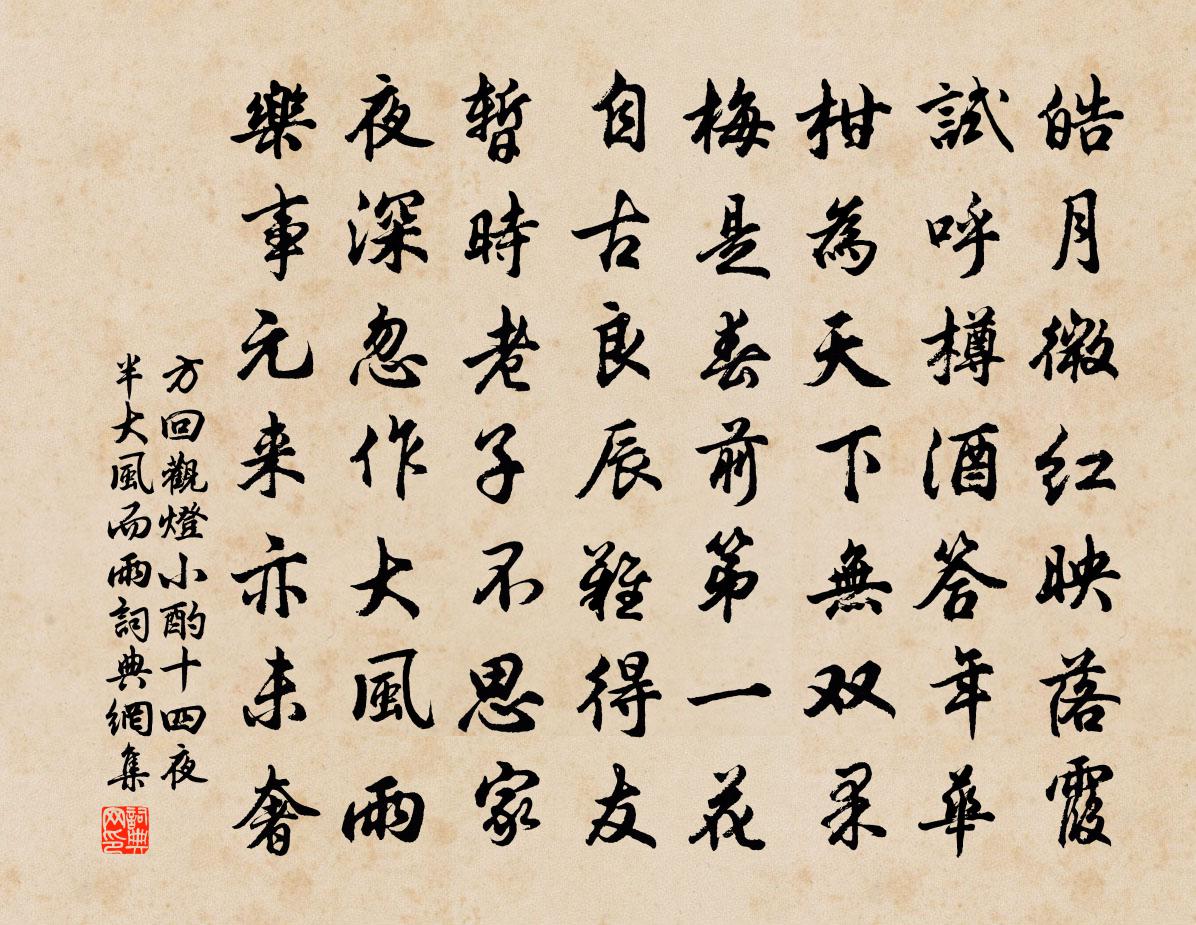 皓月微紅映落霞
試呼樽酒答年華
柑為天下無双果
梅是春前第一花
自古良辰難得友
暫時老子不思家
夜深忽作大風雨
樂事元来亦未奢
方回觀燈小酌十四夜
半大風而雨詞典網集
詞典
网印